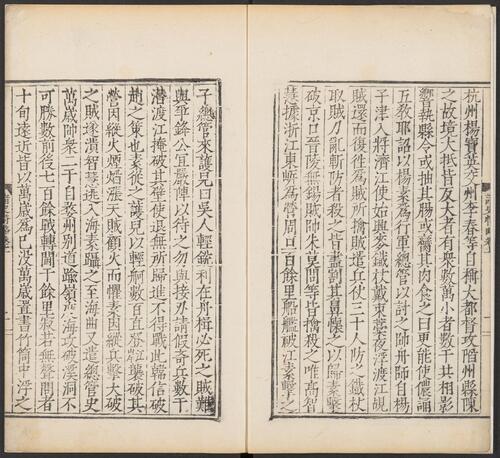 杭州楊寶英交州李春等自稱大都督攻陷州縣陳
之故境大抵皆反大者有衆數萬小者數千共相影
響執縣令或抽其腸或臠其肉食之曰更能使儂誦
五敎耶詔以楊素爲行軍總管以討之帥舟師自楊
子津入將濟江使始興麥鐵杖戴束藁夜浮渡江覘
賊還而復徃爲賊所擒賊遣兵仗三十人防之鐵杖
取賊刀亂斬防者殺之皆盡割其鼻懷之以歸素擊
破京口晉陵無錫賊帥朱莫問等皆擒殺之唯高智
慧據浙江東岸爲營周亘百餘里船艦破江素擊之
子總管來護兒曰吳人輕銳利在舟楫必死之賊難
與爭鋒公宜嚴陣以待之勿與接刃請假奇兵數千
潛渡江掩破其壁使退無所歸進不得戰此韓信破
趙之策也素從之護兒以輕舸數百直登江襲破其
營因縱火煙焰漲天賊顧火而懼素因縱兵擊大破
之賊遂潰智慧逃入海素躡之至海曲又遣總管史
萬歲帥衆二千自婺州別道踰嶺越海攻破溪洞不
可勝數前後七百餘戰轉鬬千餘里寂無聲聞者
十旬遠近皆以萬歲爲已沒萬歲置書竹筒中浮之